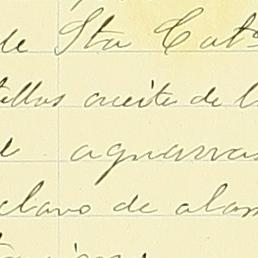 de Sta Cat
tellas aceite de l
aguarras
clavo de alam